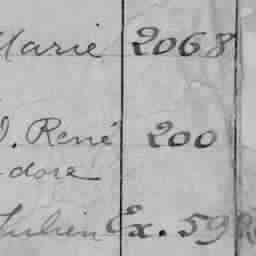 Marie 2068
J. René 200
dore
Julien Ex. 59